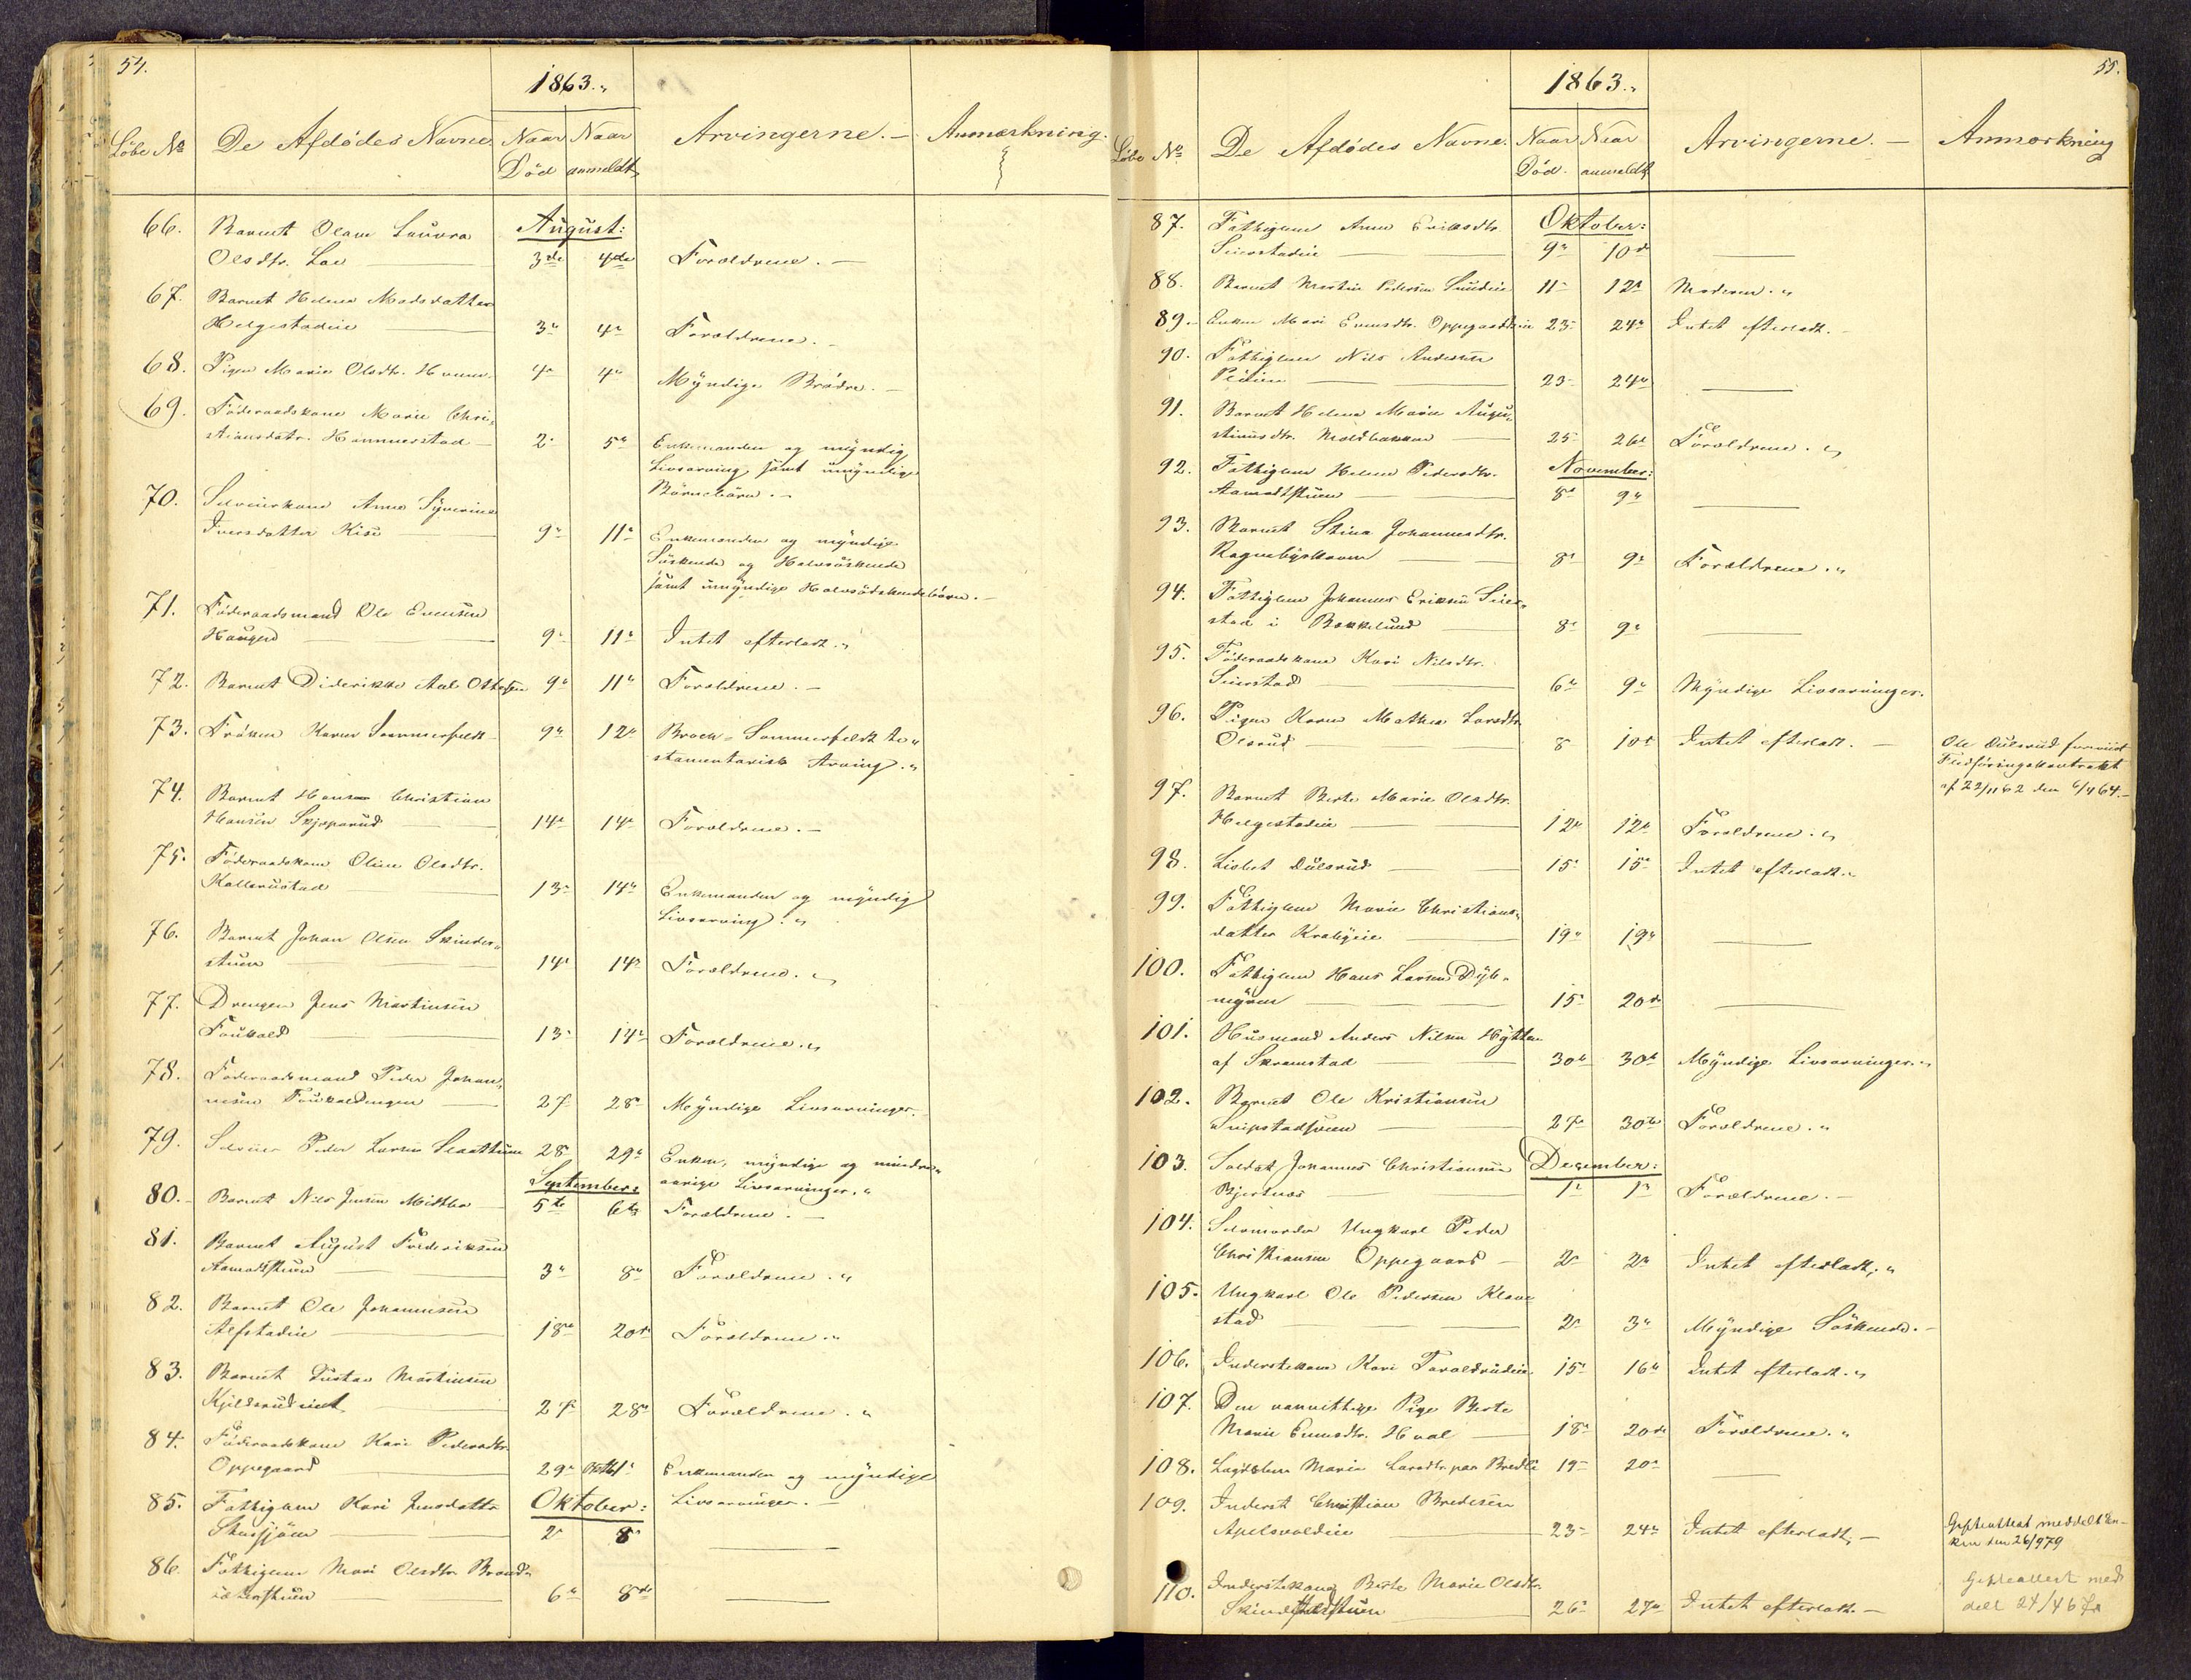 54.
1863.
Löbe No De Afdödes Navne. Naar Död Naar anmeldt Arvingerne. — Anmærkning.
66. Barnet Olam Laura August:
Olsdtr. Lae 3de 4de Forældrene. —
67. Barnet Helene Madsdatter
Helgestadeie 3" 4" Forældrene. —
68. Pigen Marie Olsdtr. 4" 4" Myndige Brödre. —
69. Föderaadskone Marie Chri-
stiansdatr. Hammerstad 2" 5" Enkemanden og myndig
Livsarving samt umyndige
Börnebörn. —
70. Selveierkone Anne Syverine
Iversdatter Kise 9" 11" Enkemanden og myndige
Söskende og Halvsöskende
samt umyndige Halvsödskendebörn. —
71. Föderaadsmand Ole Evensen
Haugen 9" 11" Intet efterladt."
72. Barnet Diderikke Aal Ottesen 9" 11" Forældrene. —
73. Fröken Karen Sommerfeldt 9" 12" Brock-Sommerfeldt te-
stamentarisk Arving."
74. Barnet Hans Christian
Hansen Skjeperud 14" 14" Forældrene. —
75. Föderaadskone Oline Olsdtr.
Kallerustad 13" 14" Enkemanden og myndig
Livsarving."
76. Barnet Johan Olsen Skinder-
stuen 14" 14" Forældrene."
77. Drengen Jens Martinsen
Faukald 13" 14" Forældrene."
78. Föderaadsmand Peder Johan-
nesen Faukaldengen 27" 28" Myndige Livsarvinger.
79. Selveier Peder Larsen 28" 29" Enken, myndige og mindre-
September: aarige Livsarvinger."
80. Barnet Nils Jensen 5te 6te Forældrene. —
81. Barnet August Frederiksen
Aamodtstuen 3" 8" Forældrene."
82. Barnet Ole Johannesen
Alfstadeie 18" 20de Forældrene."
83. Barnet Gustav Martinsen
Kjildsrudeiet 27" 28" Forældrene."
84. Föderaadskone Kari Pedersdtr.
Oppegaard 29" Oktbr 1" Enkemanden og myndige
85. Fattiglem Kari Jensdattr Oktober: Livsarvinger. —
2" 8"
86. Fattiglem Mari Olsdtr.
6" 8de
55.
1863.
Löbe No De Afdödes Navne. Naar Död. Naar anmeldt Arvingerne. — Anmærkning
87. Fattiglem Anne Eriksdtr. Oktober:
Seierstadeie 9" 10de
88. Barnet Martin Pedersen 11" 12" Moderen."
89. Enken Mari Evensdtr. Oppegaardeie 23" 24" Intet efterladt. —
90. Fattiglem Nils Andersen
23" 24"
91. Barnet Helene Marie Augu-
stinusdtr. Moldbakken 25" 26de Forældrene."
92. Fattiglem Helene Pedersdtr. November:
Aamodtstuen 8de 9"
93. Barnet Stina Johannesdtr.
Ragnebyskoven 8" 9" Forældrene."
94. Fattiglem Johannes Eriksen Seier-
stad i Bakkelund 8" 9"
95. Föderaadskone Kari Nilsdtr.
Seierstad 6" 9" Myndige Livsarvinger.
96. Pigen Karen Mathea Larsdtr.
Olsrud 8 10de Intet efterladt. — Ole Dulsrud foreviist
Fledföringskontrakt
af 22/11 62 den 6/4 64. —
97. Barnet Berte Marie Olsdtr.
Helgestadeie 12" 12" Forældrene."
98. Lisbet Dulsrud 15" 15" Intet efterladt."
99. Fattiglem Marie Christians-
datter Krabyeie 19" 19"
100. Fattiglem Hans Larsen Dyb-
myren 15" 20de
101. Husmand Anders Nilsen Hytten
af Skramstad 30te 30te Myndige Livsarvinger."
102. Barnet Ole Kristiansen
Snipstadsveen 27" 30te Forældrene."
103. Soldat Johannes Christiansen December:
Bjertnæs 1" 1" Forældrene. —
104. Selvmorder Ungkarl Peder
Christiansen Oppegaard 2" 2" Intet efterladt."
105. Ungkarl Ole Pedersen Klave-
stad 2" 3" Myndige Söskende. —
106. Inderstekone Kari Taraldrudeie 15" 16" Intet efterladt."
107. Den vanvittige Pige Berte
Marie Evensdtr. Hval 18" 20de Forældrene."
108. Lægdslem Marie Larsdtr. paa 19" 20"
109. Inderst Christian Bredesen
Apelsvoldeie 23" 24" Intet efterladt. — Gifteattest meddelt En-
ken den 26/9 79
110. Inderstekone Berte Marie Olsdtr.
26" 27" Intet efterladt. — Gifteattest med-
delt 24/4 67